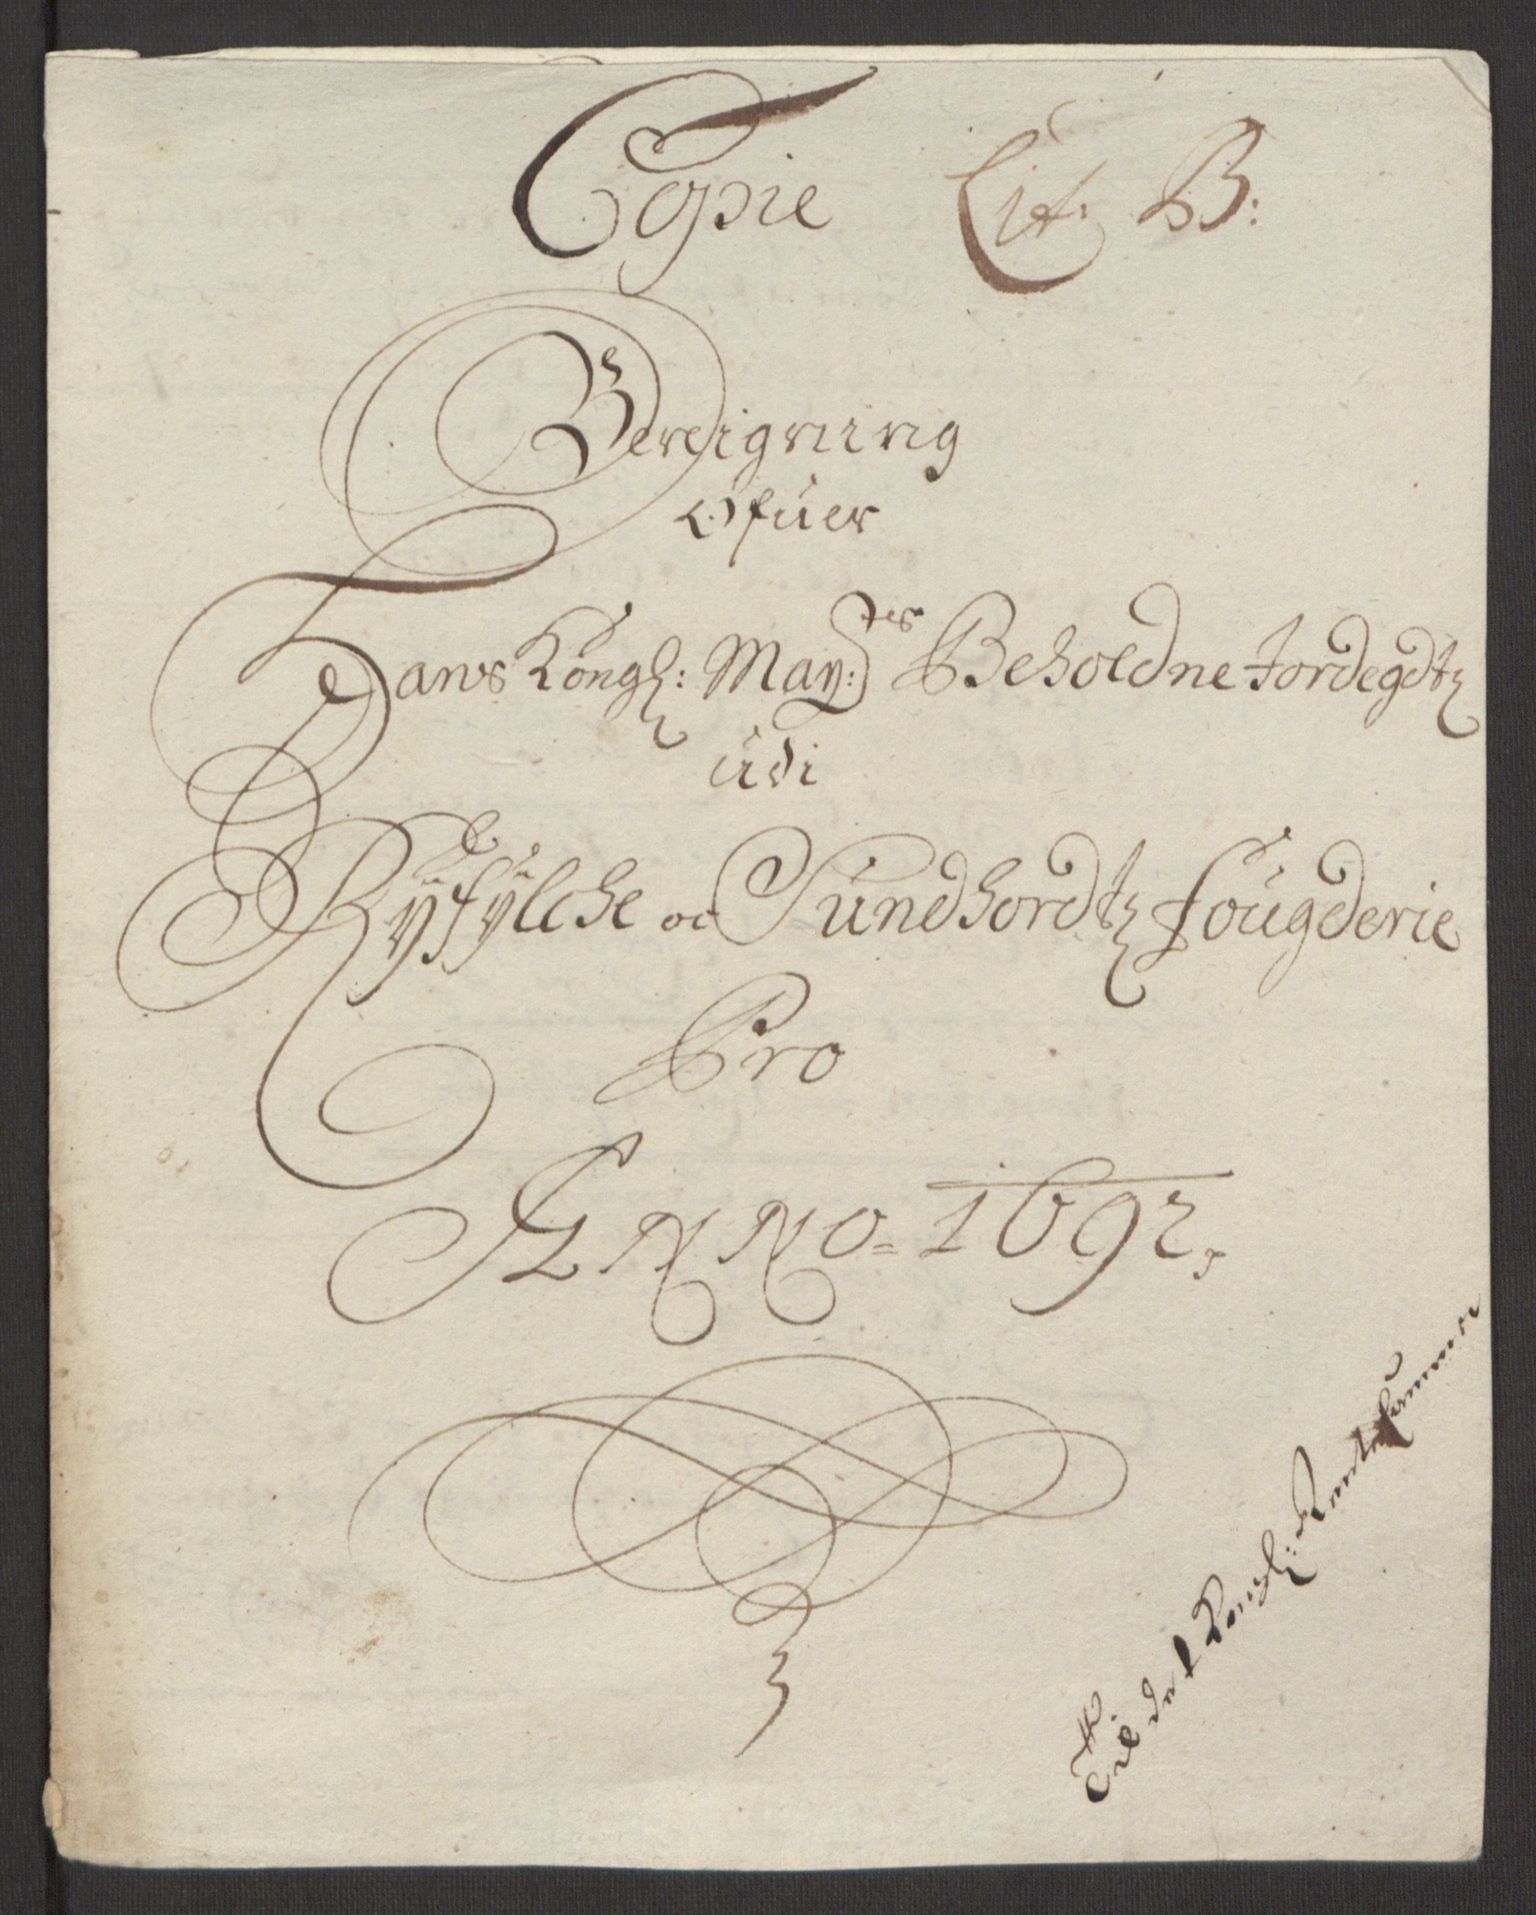 Copie Lit: B:
Bereigning
Ofuer
Hans Kongl: May:tes Beholdne Jordegdtz
udi
Ryfylche oc Sundhordtz fougderie
Pro
ANNO= 1692,
Til Det Kongl: Rentekammer